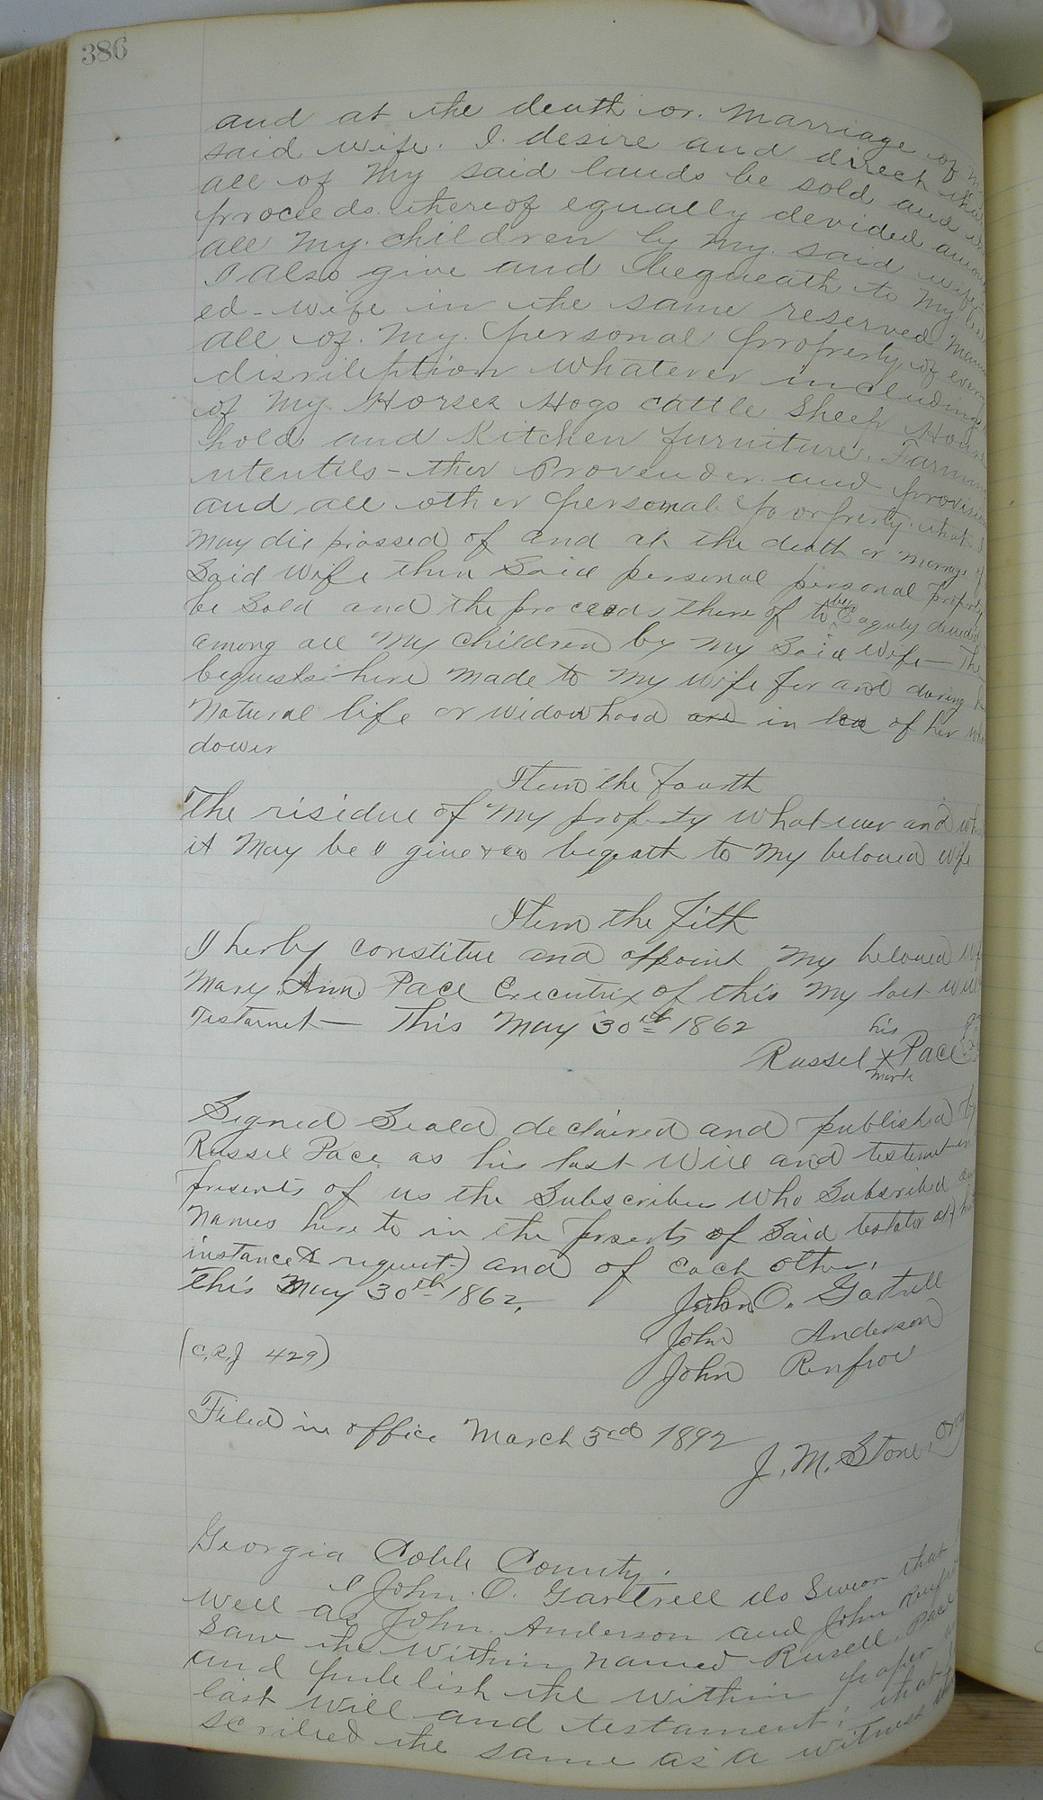 386
and at the death or Marriage of
said wife. I desire and direct that
all of My said lands be sold and
proceeds thereof equally devided among
all My children by My said wife
I also give and bequeath to My
ed-wife in the same reserved
all of My personal property of every
discription whatever including
of My Horses Hogs cattle Sheep House
hold and Kitchen furniture, Farming
utentils - ther Provender and provision
and all other personal poorprerty that I
May die possed of and at the death or merrage of
Said Wife then Said personal personal property
be Sold and the procceds there of to be eaquly devided
among all My Children by My Said Wife - The
bequests here made to My Wife for and during
Natural life or widowhood are in leu of her
dower
Item the fourth
The risidue of My property Whatever and
it May be I give & beqeath to My beloved Wife
Item the fith
I herby constitue and appoint My beloved
Mary Ann Pace Executrix of this My last Will
Testamet - This May 30th 1862
his
Russel X Pace
mark
Signed Seald declaired and published by
Russel Pace as his last Will and testemet in
presents of us the Subscribers who Subscribed
Names here to in the presents of Said testator at
instance & request) and of each other,
this May 30th 1862,
John O. Gartrell
John Anderson
(C.R.J 429)
John Renfroe
Filed in office March 3rd 1892
J. M. Stone, Ordy
Georgia Cobb County.
I John. O. Gartrell do Swear that
well as John. Anderson and John
Saw the Within named Rusell Pace
and publish the within paper
last Will and testament; that
scribed the same as a witness